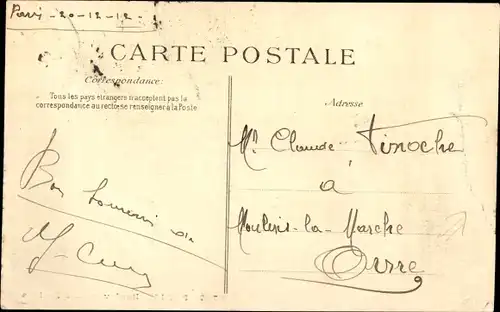 Paris - 20-12-12 -
CARTE POSTALE
Correspondance:
Tous les pays étrangers n'acceptent pas la
correspondance au recto, se renseigner à la Poste
Adresse
Mr. Claude Tinoche
à
Moulins-la-Marche
Orne
Bon souvenir